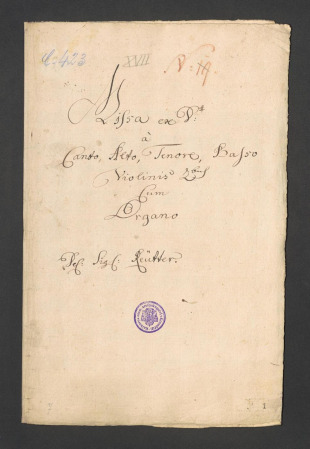 C: 423
XVII
N: 19
Missa ex D♯
à
Canto, Alto, Tenore, Basso
Violinis 2bus
Cum
Organo
Del Sig: Reütter.
1